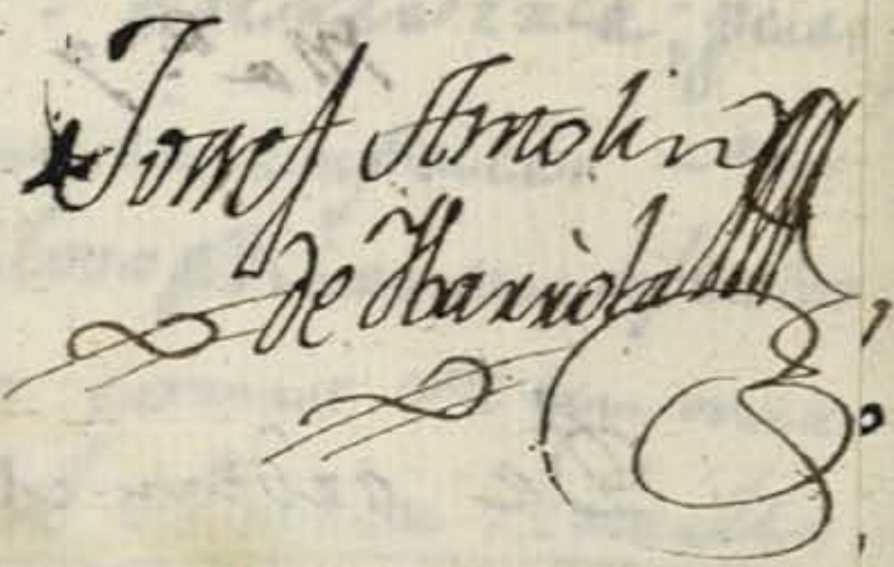 Joseph Antolin
de Ibarrola